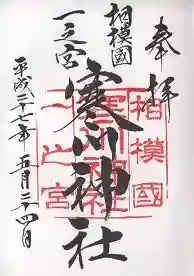 奉拝
相模國
一之宮
寒川神社
平成二十七年五月二十四日
相模國
寒川神社
一之宮